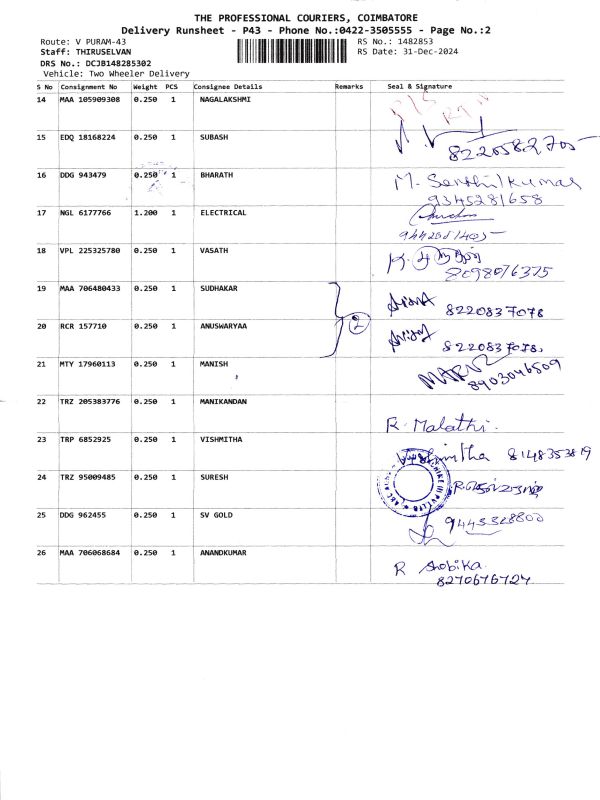 THE PROFESSIONAL COURIERS, COIMBATORE
Delivery Runsheet - P43 - Phone No.:0422-3505555 - Page No.:2
Route: V PURAM-43 RS No.: 1482853
Staff: THIRUSELVAN RS Date: 31-Dec-2024
DRS No.: DCJB148285302
Vehicle: Two Wheeler Delivery
S No Consignment No Weight PCS Consignee Details Remarks Seal & Signature
14 MAA 105909308 0.250 1 NAGALAKSHMI
15 EDQ 18168224 0.250 1 SUBASH 8220582705
16 DDG 943479 0.250 1 BHARATH M. Senthilkumar
9345281658
17 NGL 6177766 1.200 1 ELECTRICAL
18 VPL 225325780 0.250 1 VASATH
8098076375
19 MAA 706480433 0.250 1 SUDHAKAR 8220837078
2
20 RCR 157710 0.250 1 ANUSWARYAA 8220837078
21 MTY 17960113 0.250 1 MANISH 8903046509
22 TRZ 205383776 0.250 1 MANIKANDAN R. Malathi.
23 TRP 6852925 0.250 1 VISHMITHA Vishmitha 8148353819
24 TRZ 95009485 0.250 1 SURESH
25 DDG 962455 0.250 1 SV GOLD 9443328800
26 MAA 706068684 0.250 1 ANANDKUMAR R Shobika.
8270676727